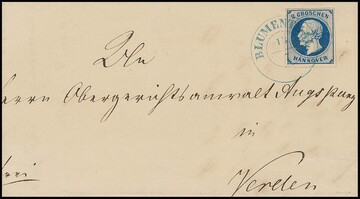 BLUMEN
2 GROSCHEN
HANNOVER
An
Herrn Obergerichtsanwalt Augspurg
in
frei
Verden